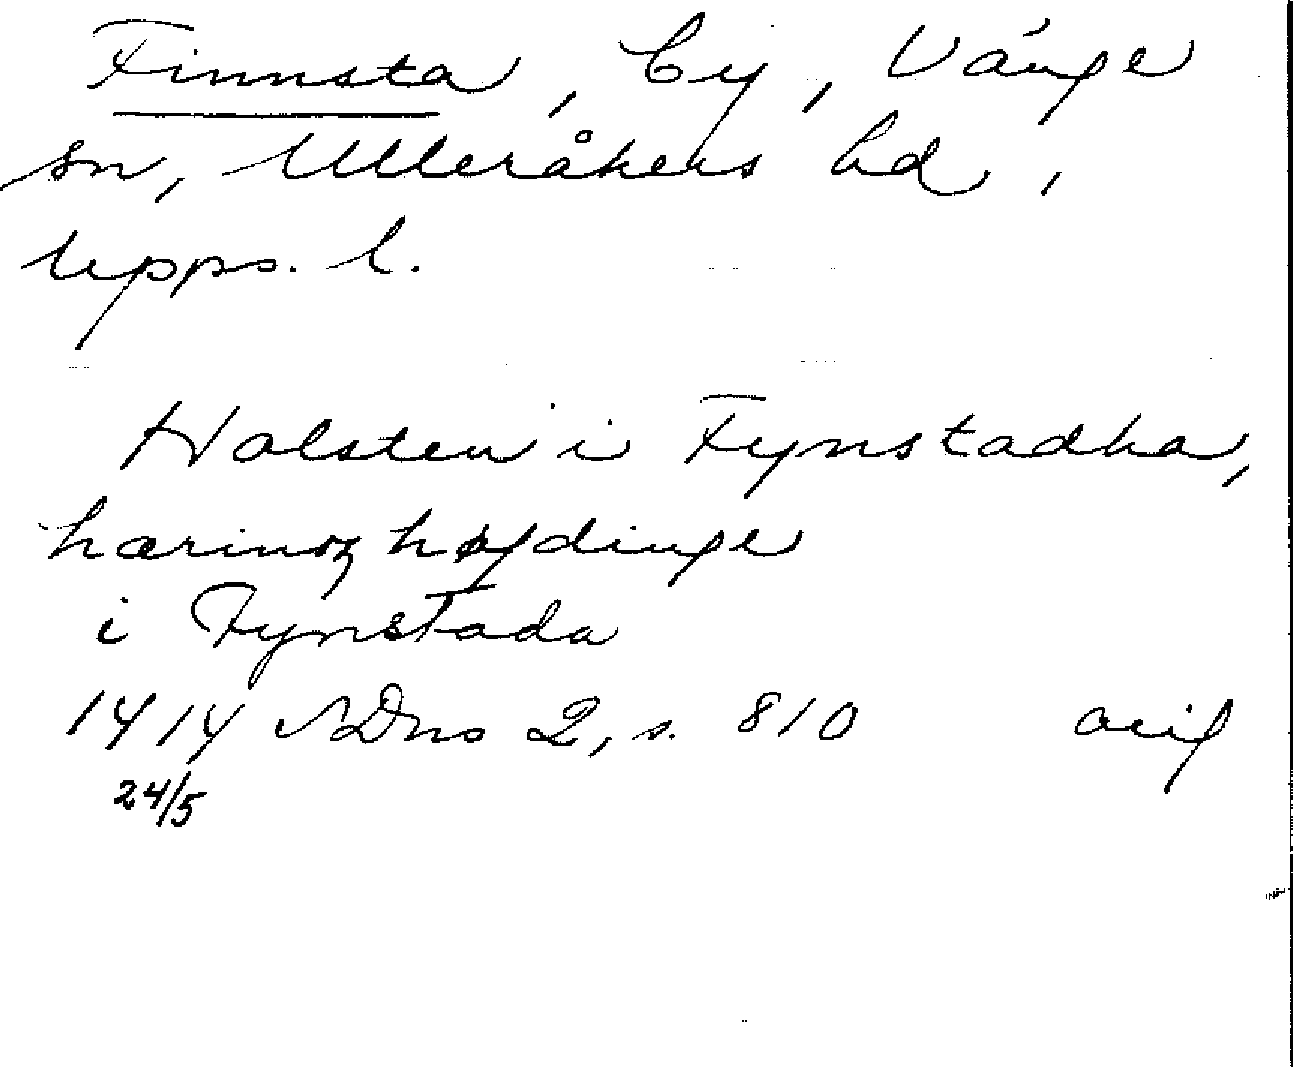 Finnsta, by, Vänge
sn, Ulleråkers hd,
Upps. l.
Holsten i Fynstadha,
hærinzhøfdinge
i Fynstada
1414 SDns 2, s. 810 orig
24/5